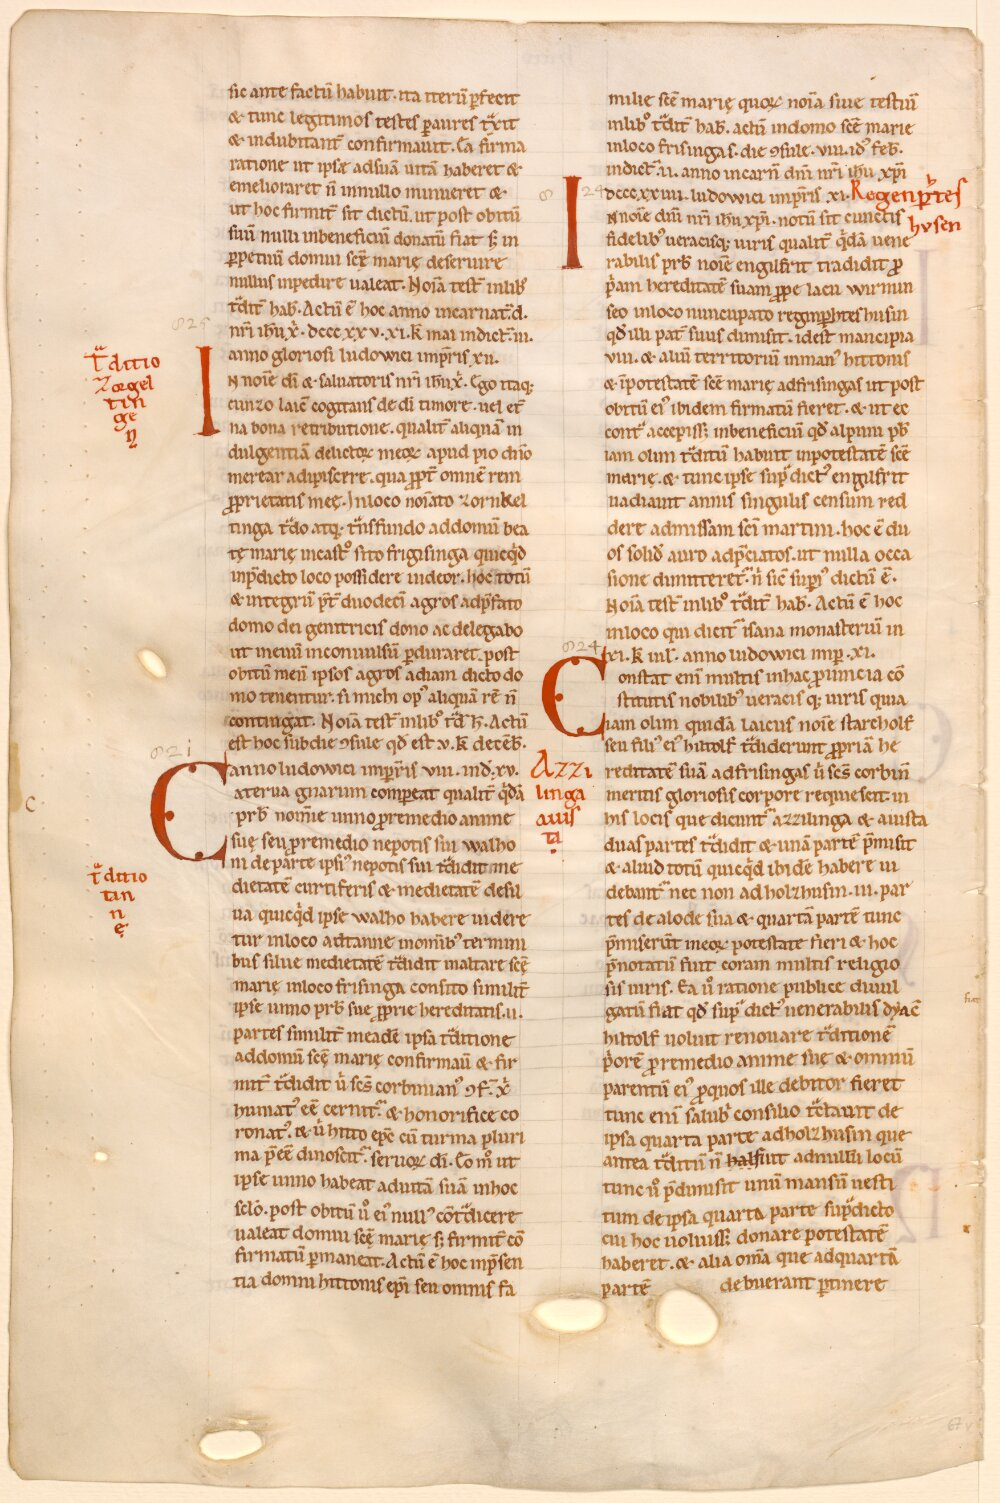 sic ante factū habuit. ita iterū ꝑfecit
& tunc legitimos testes ꝑ aures t̄xit
& indubitant̄ confirmauit. Ea firma
ratione ut ipsæ ad suā uitā haberet &
emelioraret ń in nullo minueret &
ut hoc firmit̄ sit dictū. ut post obitū
suū nulli in beneficiū donatū fiat s; in
ꝑpetuū domui scę marię deseruire
nullus inpedire ualeat. Noīa test̄ in lib̄
t̄dit̄ hab̄. Actū ē hoc anno incarnat̄. d.
nr̄i ih̄u x̄. dccc xx v. xi. k mai indict̄. iii.
anno gloriosi ludowici imp̄ris xii.
825
t̄ditio
Zorgel
tin
ge
n
IN noīe dī & saluatoris nr̄i ih̄u x̄. Ego itaq;
cunzo laic̄ cogitans de dī timore. uel et̄
na bona retributione. qualit̄ aliquā in
dulgentiā delictoꝝ meoꝝ apud pio dn̄o
merear adipiscere. qua ꝓpt̄ omnē rem
ꝓprietatis meę. In loco noīato zornkel
tinga t̄do atq; t̄nsfundo ad domū bea
tę marię in cast̄o sito frigisinga quicq̄d
in p̄dicto loco possidere uideor. hoc totū
& integrū p̄t̄ duodecī agros ad p̄fato
domo dei genitricis dono ac delegabo
ut meniī inconuulsū ꝑduraret. post
obitū meū ipsos agros ad iam dicto do
mo tenentur. si michi op̄ aliquā rē ń
contingat. Noīa test̄ in lib̄ t̄d h̄. Actū
est hoc sub die ꝯsule qd̄ est v. k decēb̄.
anno ludowici imp̄ris viii. ind. xv.
821
Caterua gnarum compeat qualit̄ q̄dā
prb̄ nomine unno pro remedio anime
suę seu pro remedio nepotis sui walho
ni de parte ipsi᷒ nepotis sui t̄didit me
dietatē curtiferis & medietatē desil
ua quicq̄d ipse walho habere uidere
t̄ditio
tan
n
ę
tur in loco ad tanne in omīb̄ termini
bus siluę medietatē t̄didit in altare scę
marię in loco frisinga consito similit̄
ipse unno prb̄ sue ꝓprie hereditatis. ii.
partes similit̄ in eadē ipsa t̄ditione
ad domū scę marię confirmauī & fir
mit̄ t̄didit ū scs̄ corbinian᷒ ꝯf. x̄
humat᷒ eē cernit̄. & honorifice co
ronat᷒. & ū hitto epc̄ cū turma pluri
ma p̄eē dinoscit̄. seruoꝝ dī. Eo m̊ ut
ipse unno habeat ad uitā suā in hoc
sclo. post obitū u̇ ei᷒ null᷒ cōt̄dicere
ualeat domui scę marię s; firmit̄ cō
firmatū ꝑmaneat. Actū ē hoc in p̄sen
tia domni hittonis epī seu omnis fa
milie scę marię quoꝝ noīa siue testiū
in lib̄ t̄dit̄ hab̄. actū in domo scę marie
in loco frisingas. die ꝯsule. viii. id᷒ feb̄.
indict̄. ii. anno incarn̄ dn̄i nr̄i ih̄u xpī
dccc. xx iiii. ludowici imp̄ris xi. Regenp̄tes
husen
824
IN noīe dn̄i nr̄i ih̄u xpī. notū sit cunctis
fidelib᷒ ueracisq; uiris qualit̄ q̄dā uene
rabilis prb̄ noīe engilfrit tradidit ꝓ
p̄am hereditatē suam ꝓpe lacū wirmin
seo in loco nuncupato reginp̄htes husin
qd̄ illi pat̄ suus dimisit. id est mancipia
viii. & aliū territoriū in man᷒ hittonis
& ī potestatē scē marię ad frisingas ut post
obitū ei᷒ ibidem firmatū fieret. & ut ec
cont̄ accepiss; in beneficiū qd̄ alpuni prb̄
iam olim t̄ditū habuit in potestatē scē
marię. & tunc ipse sup̄ dict᷒ engilfrit
uadiauit annis singulis censum red
dere ad missam scī martini. hoc ē du
os solid̄ auro adp̄ciatos. ut nulla occa
sione dimitteret̄. ń sic̄ sup̄i᷒ dictū ē.
Noīa test̄ in lib̄ t̄dit̄ hab̄. Actū ē hoc
in loco qui dicit̄ isana monasteriū in
xi. k iul. anno ludowici imp̄. xi.
824
Constat enī multis in hac ꝓuincia cō
stitutis nobilib᷒ ueracis q; uiris quia
iam olim quidā laicus noīe starcholf
seu fili᷒ ei᷒ hittolf t̄diderunt ꝓpriā he
Azzi
linga
auis
ta
reditatē suā ad frisingas ū scs̄ corbiń
meritis gloriosis corpore requiescit in
his locis que dicunt̄ azzilinga & auista
duas partes t̄didit & unā partē p̄misit
& aliud totū quicq̄d ibidē habere ui
debant̄ nec non ad holzhusin. iii. par
tes de alode sua & quartā partē tunc
p̄miserūt in eoꝝ potestate fieri & hoc
p̄notatū fuit coram multis religio
sis uiris. Ea u̇ ratione publice diuul
gatū fiat qd̄ sup̄ dict᷒ uenerabilis dyac̄
hittolf uoluit renouare t̄ditionē
p̄orē ꝓ remedio anime suę & omniū
parentū ei᷒ ꝓ quos ille debitor fieret
tunc enī salub̄i consilio t̄ctauit de
ipsa quarta parte ad holzhusin que
antea t̄ditū ń habuit ad nullū locū
tunc u̇ p̄dimisit unū mansū uesti
tum de ipsa quarta parte sup̄dicto
cui hoc uoluiss; donare potestatē
haberet. & alia om̄a que ad quartā
partē debuerant ꝑtinere
67v